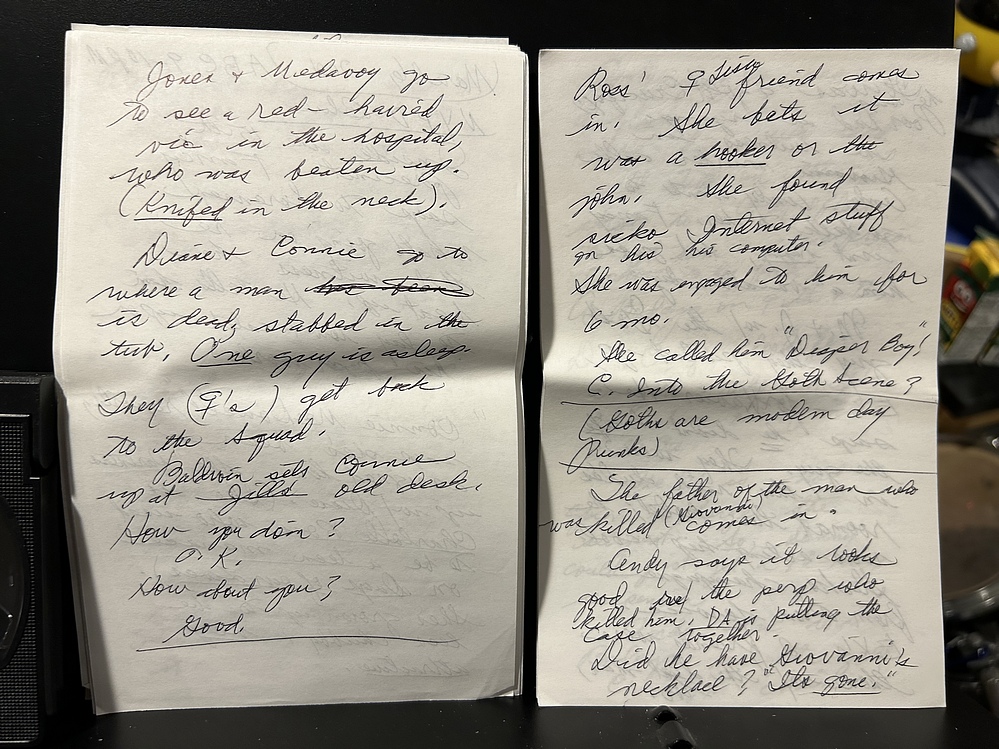 Jones & Medavoy go
to see a red-haired
vic in the hospital,
who was beaten up.
(Knifed in the neck).
Diane & Connie go to
where a man has been
is dead, stabbed in the
tub. One guy is asleep.
They (♀'s) get back
to the squad.
Baldwin sets Connie
up at Jill's old desk.
How you doin?
O.K.
How about you?
Good.
Ross' ♀ friend comes
in. She bets it
was a hooker or the
john. She found
sicko Internet stuff
on his his computer.
She was engaged to him for
6 mo.
She called him "Diaper Boy!"
C. Into the Goth Scene?
(Goths are modern day
Punks)
The father of the man who
was killed (Giovanni) comes in.
Andy says it looks
good the perp who
killed him. DA is putting the
case together.
Did he have Giovanni's
necklace? "Its gone."